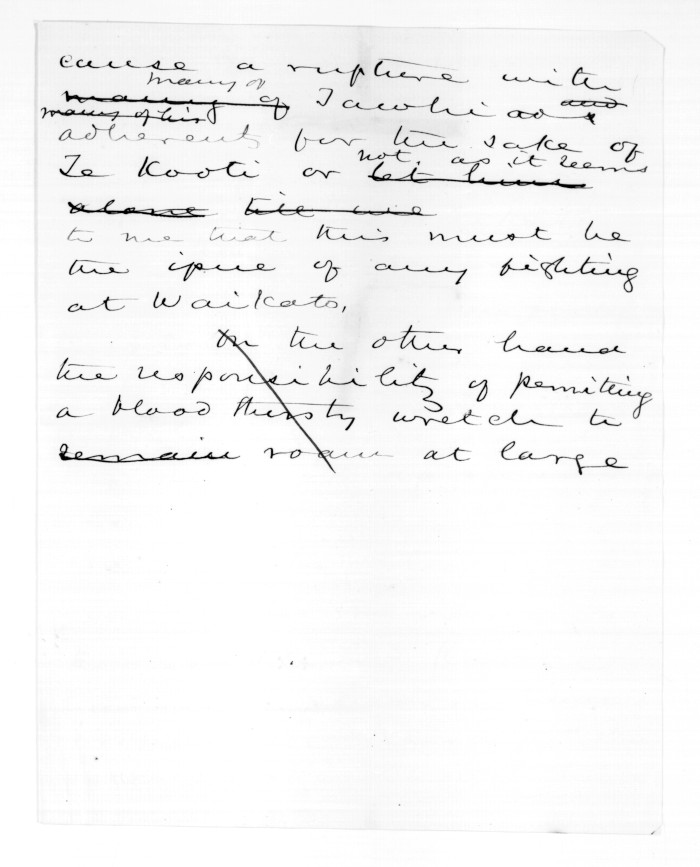 cause a rupture with
many of
many of Tawhiao and
many of his
adherents for the sake of
not, as it seems
Te Kooti or let him
alone till we
to me that this must be
the issue of any fighting
at Waikato,
On the other hand
the responsibility of permitting
a blood thirsty wretch to
remain roam at large